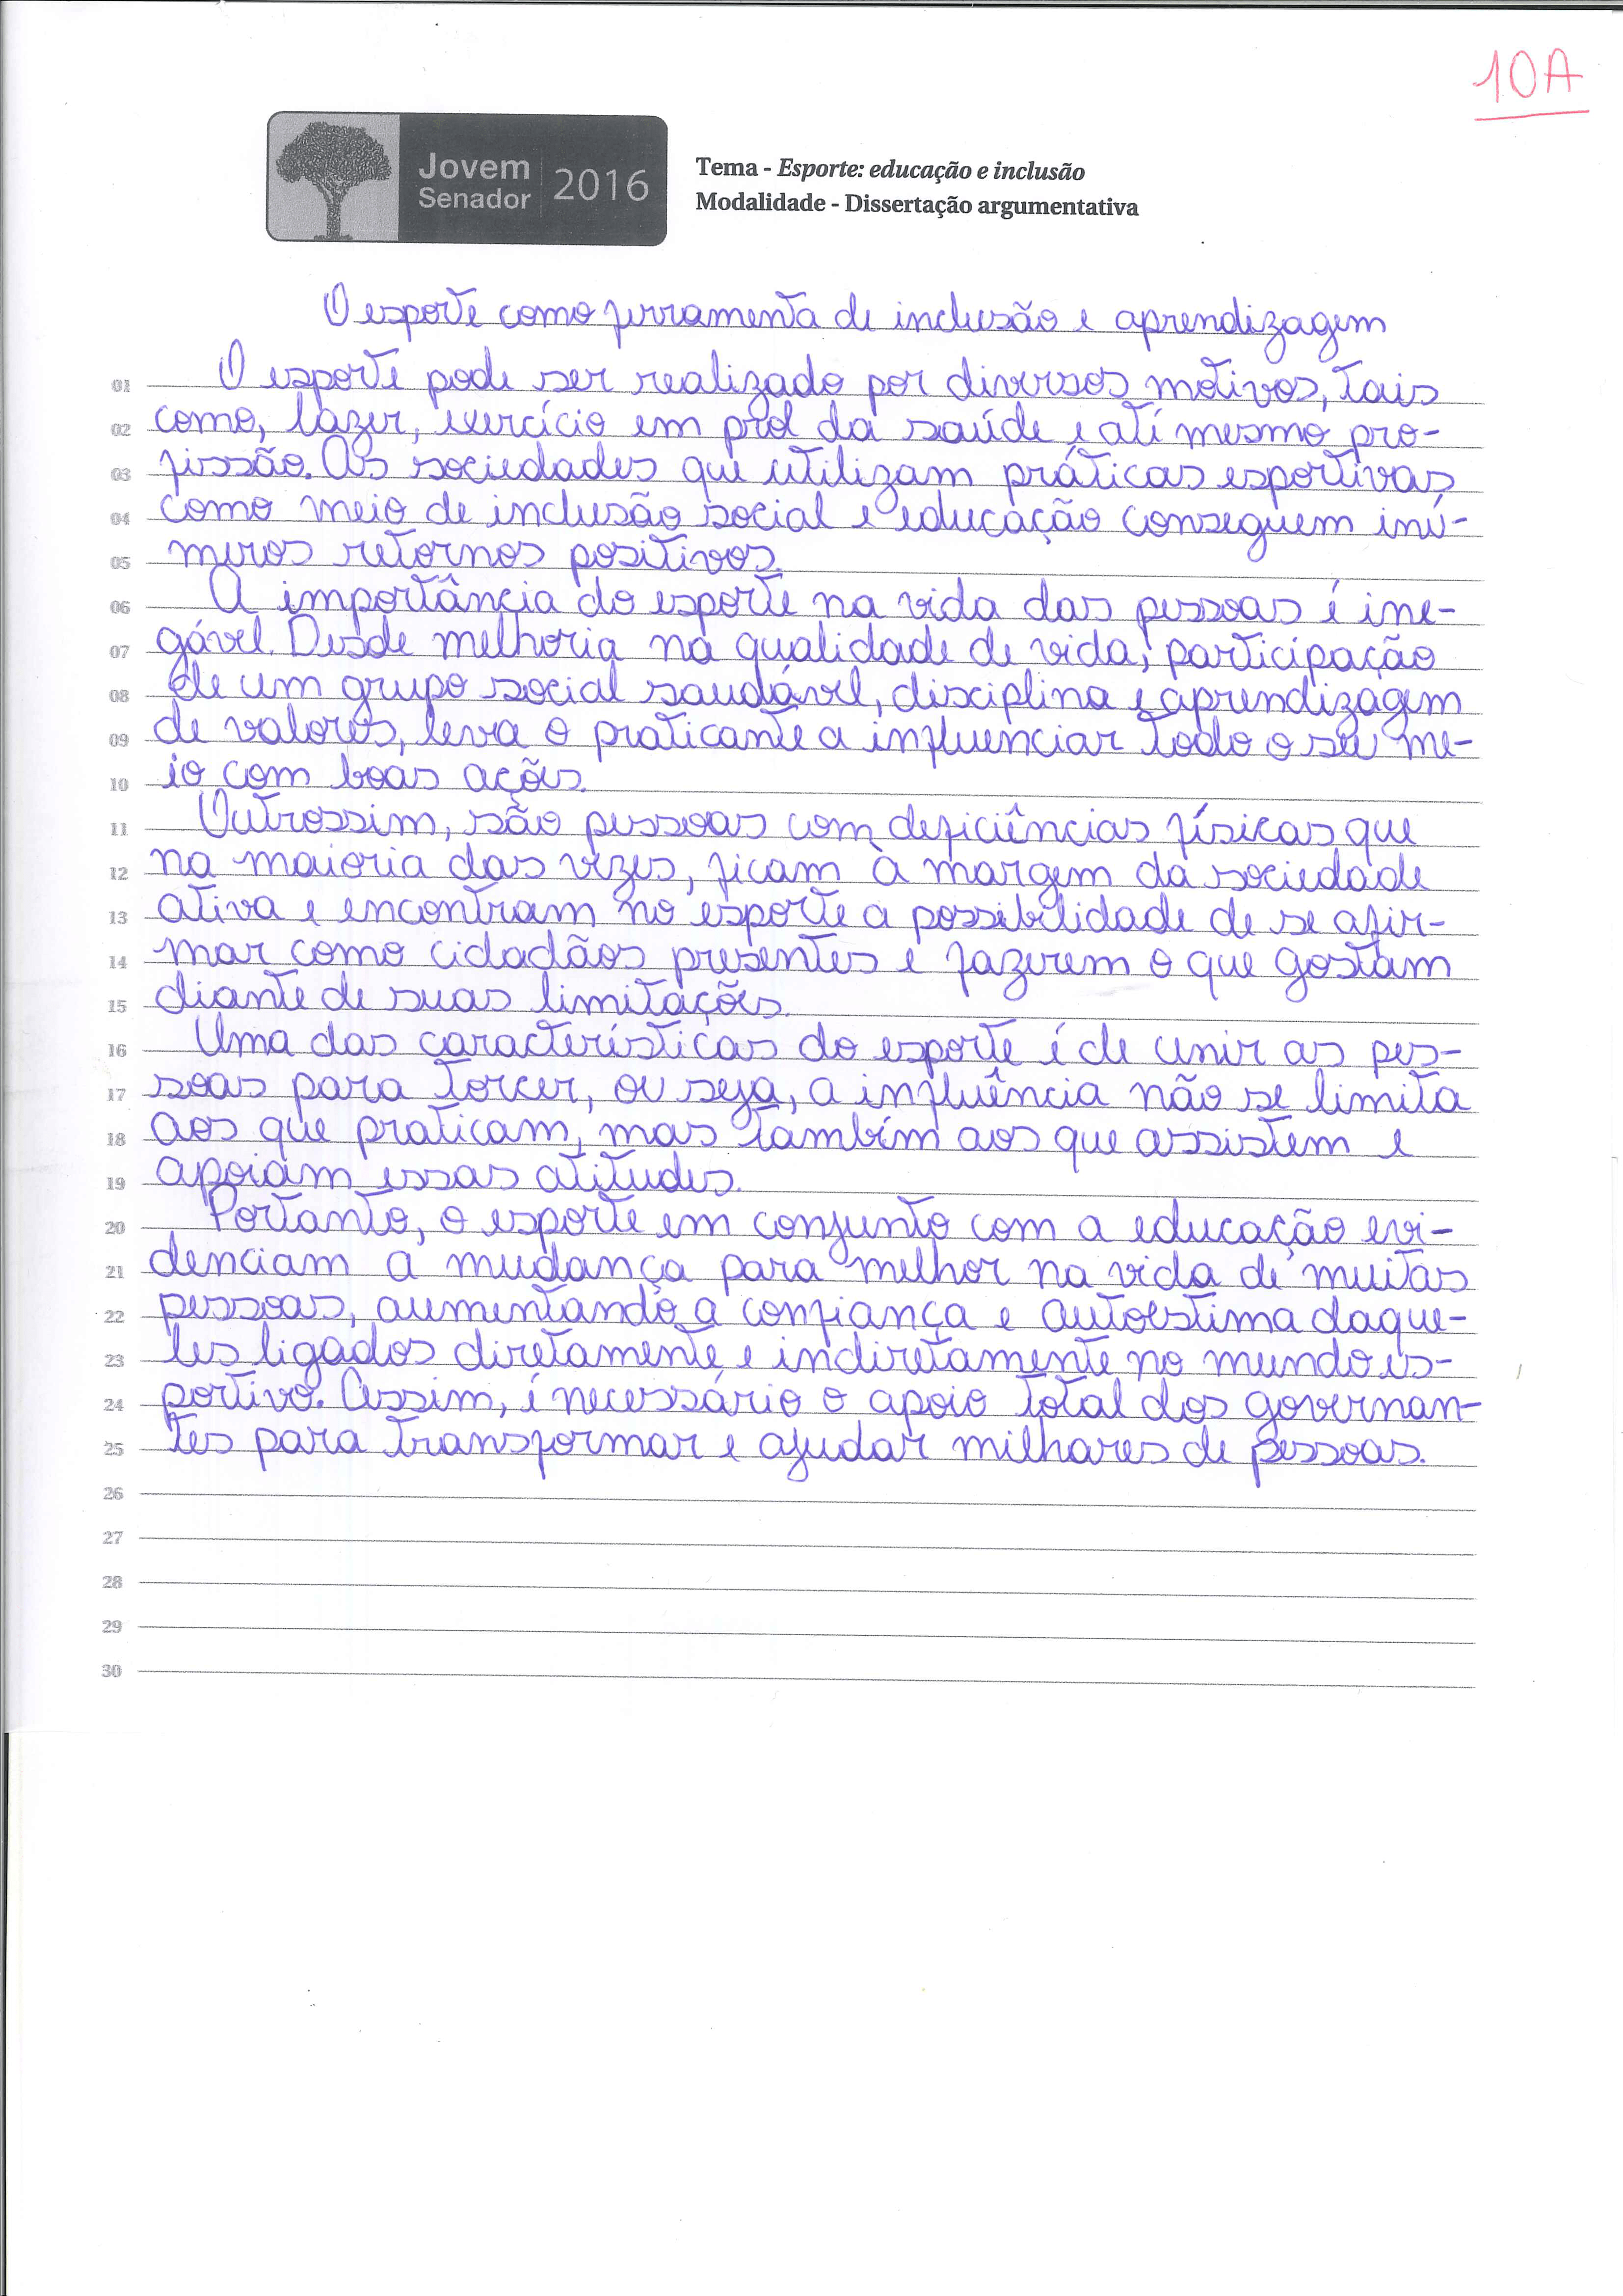 10A
Jovem
Senador
2016
Tema - Esporte: educação e inclusão
Modalidade - Dissertação argumentativa
O esporte como ferramenta de inclusão e aprendizagem
01 O esporte pode ser realizado por diversos motivos, tais
02 como, lazer, exercício em prol da saúde e até mesmo pro-
03 fissão. As sociedades que utilizam práticas esportivas
04 como meio de inclusão social e educação conseguem inú-
05 meros retornos positivos.
06 A importância do esporte na vida das pessoas é ine-
07 gável. Desde melhoria na qualidade de vida, participação
08 de um grupo social saudável, disciplina e aprendizagem
09 de valores, leva o praticante a influenciar todo o seu me-
10 io com boas ações.
11 Outrossim, são pessoas com deficiências físicas que
12 na maioria das vezes, ficam à margem da sociedade
13 ativa e encontram no esporte a possibilidade de se afir-
14 mar como cidadãos presentes e fazerem o que gostam
15 diante de suas limitações.
16 Uma das características do esporte é de unir as pes-
17 soas para torcer, ou seja, a influência não se limita
18 aos que praticam, mas também aos que assistem e
19 apoiam essas atitudes.
20 Portanto, o esporte em conjunto com a educação evi-
21 denciam a mudança para melhor na vida de muitas
22 pessoas, aumentando a confiança e autoestima daque-
23 les ligados diretamente e indiretamente no mundo es-
24 portivo. Assim, é necessário o apoio total dos governan-
25 tes para transformar e ajudar milhares de pessoas.
26
27
28
29
30